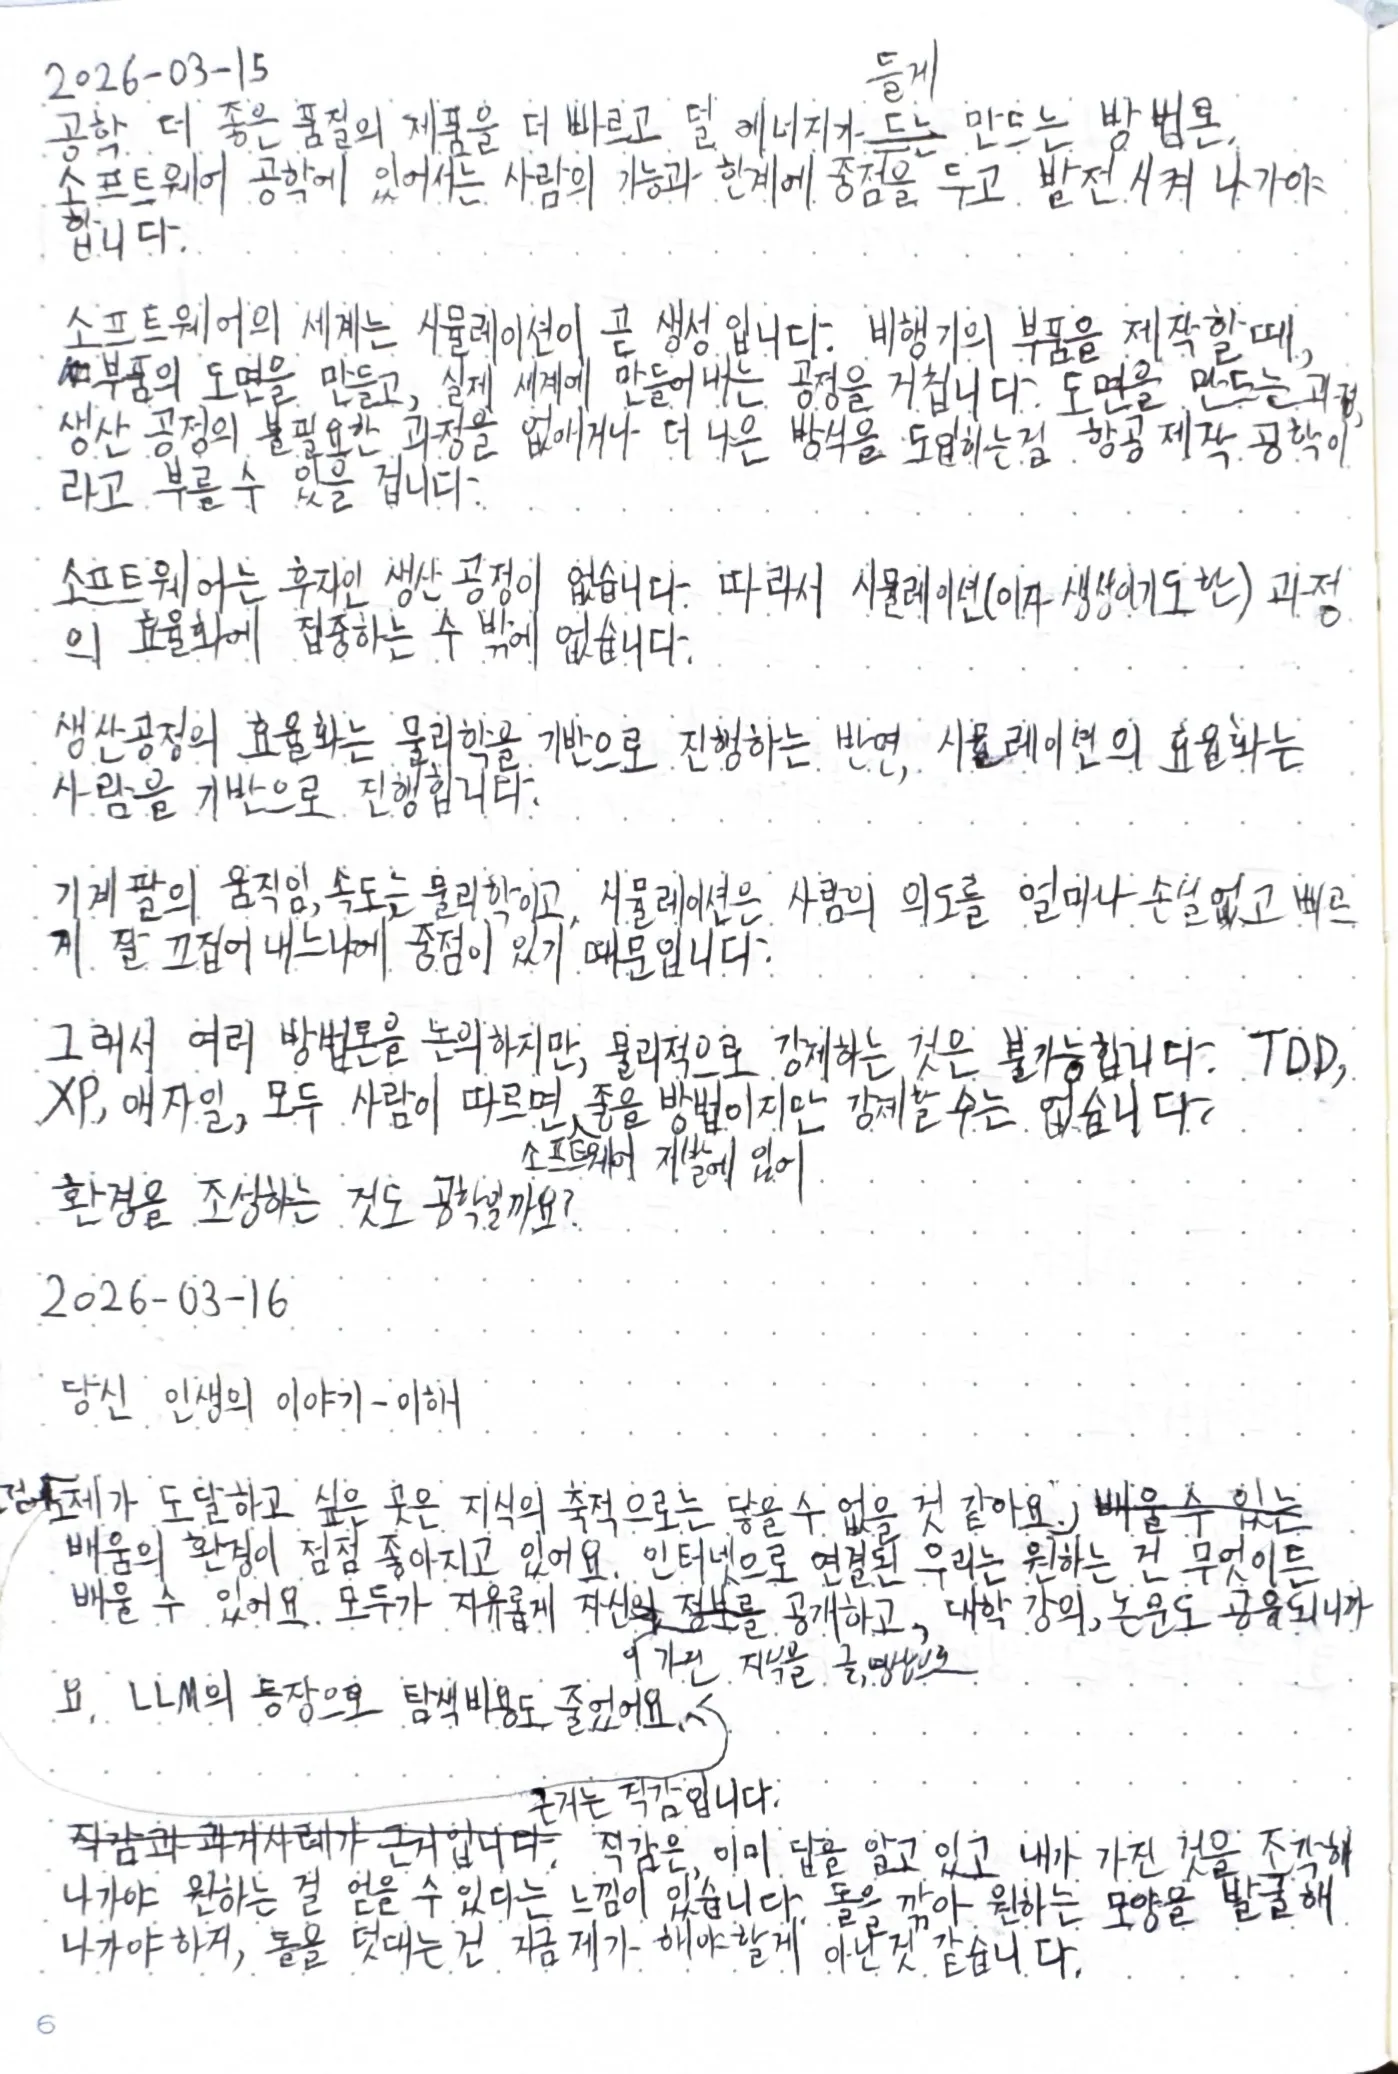 2026-03-15
들게
공학 더 좋은 품질의 제품을 더 빠르고 덜 에너지가 드는 만드는 방법론.
소프트웨어 공학에 있어서는 사람의 기능과 한계에 중점을 두고 발전시켜 나가야
합니다.
소프트웨어의 세계는 시뮬레이션이 곧 생성입니다. 비행기의 부품을 제작할 때,
부품의 도면을 만들고, 실제 세계에 만들어내는 공정을 거칩니다. 도면을 만드는 과정,
생산 공정의 불필요한 과정을 없애거나 더 나은 방식을 도입하는걸 항공 제작 공학이
라고 부를 수 있을 겁니다.
소프트웨어는 후자인 생산 공정이 없습니다. 따라서 시뮬레이션(이자 생성이기도한) 과정
의 효율화에 집중하는 수 밖에 없습니다.
생산공정의 효율화는 물리학을 기반으로 진행하는 반면, 시뮬레이션의 효율화는
사람을 기반으로 진행합니다.
기계 팔의 움직임, 속도는 물리학이고, 시뮬레이션은 사람의 의도를 얼마나 손실없고 빠르
게 잘 끄집어 내느냐에 중점이 있기 때문입니다.
그래서 여러 방법론을 논의하지만, 물리적으로 강제하는 것은 불가능합니다. TDD,
XP, 애자일, 모두 사람이 따르면 좋을 방법이지만 강제할 수는 없습니다.
소프트웨어 개발에 있어
환경을 조성하는 것도 공학일까요?
2026-03-16
당신 인생의 이야기 - 이해
제가 도달하고 싶은 곳은 지식의 축적으로는 닿을 수 없을 것 같아요. 배울 수 있는
배움의 환경이 점점 좋아지고 있어요. 인터넷으로 연결된 우리는 원하는 건 무엇이든
배울 수 있어요. 모두가 자유롭게 자신의 정보를 공개하고, 대학 강의, 논문도 공유되니까
이 가진 지식을 글, 영상으로
요. LLM의 등장으로 탐색비용도 줄었어요.
근거는 직감입니다.
직감과 과거사례가 근거입니다. 직감은, 이미 답을 알고 있고 내가 가진 것을 조각해
나가야 원하는 걸 얻을 수 있다는 느낌이 있습니다. 돌을 깎아 원하는 모양을 발굴해
나가야하지, 돌을 덧대는건 지금 제가 해야할게 아닌것 같습니다.
6